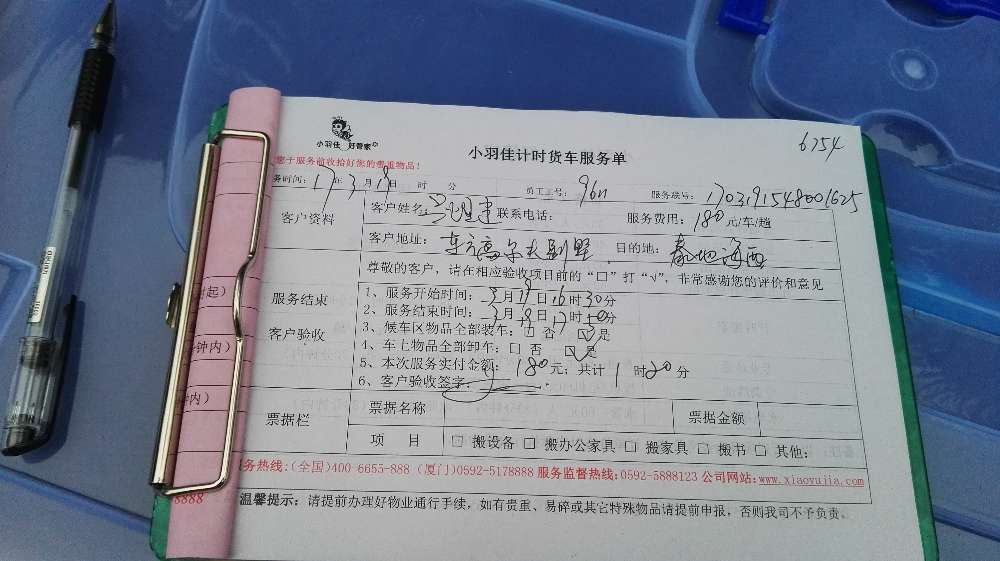 6254
小羽佳 好管家
小羽佳计时货车服务单
您于服务前收拾好您的贵重物品！
务时间：17年3月19日 时 分 员工工号：96n 服务账号：
客户资料 客户姓名： 联系电话： 服务费用：180元/车/趟
客户地址：东方高尔夫别墅 目的地：
尊敬的客户，请在相应验收项目前的“□”打“√”，非常感谢您的评价和意见
服务结束
客户验收
1、服务开始时间：3月19日16时30分
2、服务结束时间：3月19日17时50分
3、候车区物品全部装车：□ 否 ☑是
4、车上物品全部卸车：□ 否 ☑是
5、本次服务实付金额：180元；共计1时20分
6、客户验收签字：
时起）
钟内）
内）
票据栏 票据名称 票据金额
项 目 □ 搬设备 □ 搬办公家具 □ 搬家具 □ 搬书 □ 其他：
服务热线：(全国)400 6655-888 (厦门)0592-5178888 服务监督热线：0592-5888123 公司网站：www.xiaoyujia.com
8888
温馨提示：请提前办理好物业通行手续，如有贵重、易碎或其它特殊物品请提前申报，否则我司不予负责。